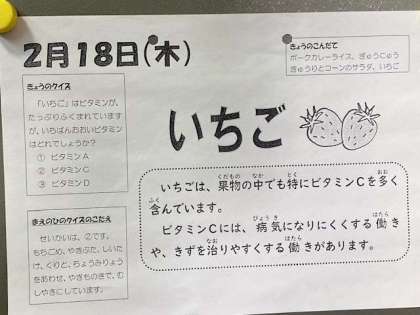 2月18日(木)
きょうのこんだて
ポークカレーライス、ぎゅうにゅう
きゅうりとコーンのサラダ、いちご
きょうのクイズ
「いちご」はビタミンが、
たっぷりふくまれています
が、いちばんおおいビタミン
はどれでしょうか?
① ビタミンA
② ビタミンC
③ ビタミンD
いちご
いちごは、果物の中でも特にビタミンCを多く
含んでいます。
ビタミンCには、病気になりにくくする働き
や、きずを治りやすくする働きがあります。
まえのひのクイズのこたえ
せいかいは、②です。
もちごめ、やきぶた、しいた
け、くりと、ちょうみりょう
をあわせ、やきものきで、む
しやきにしています。